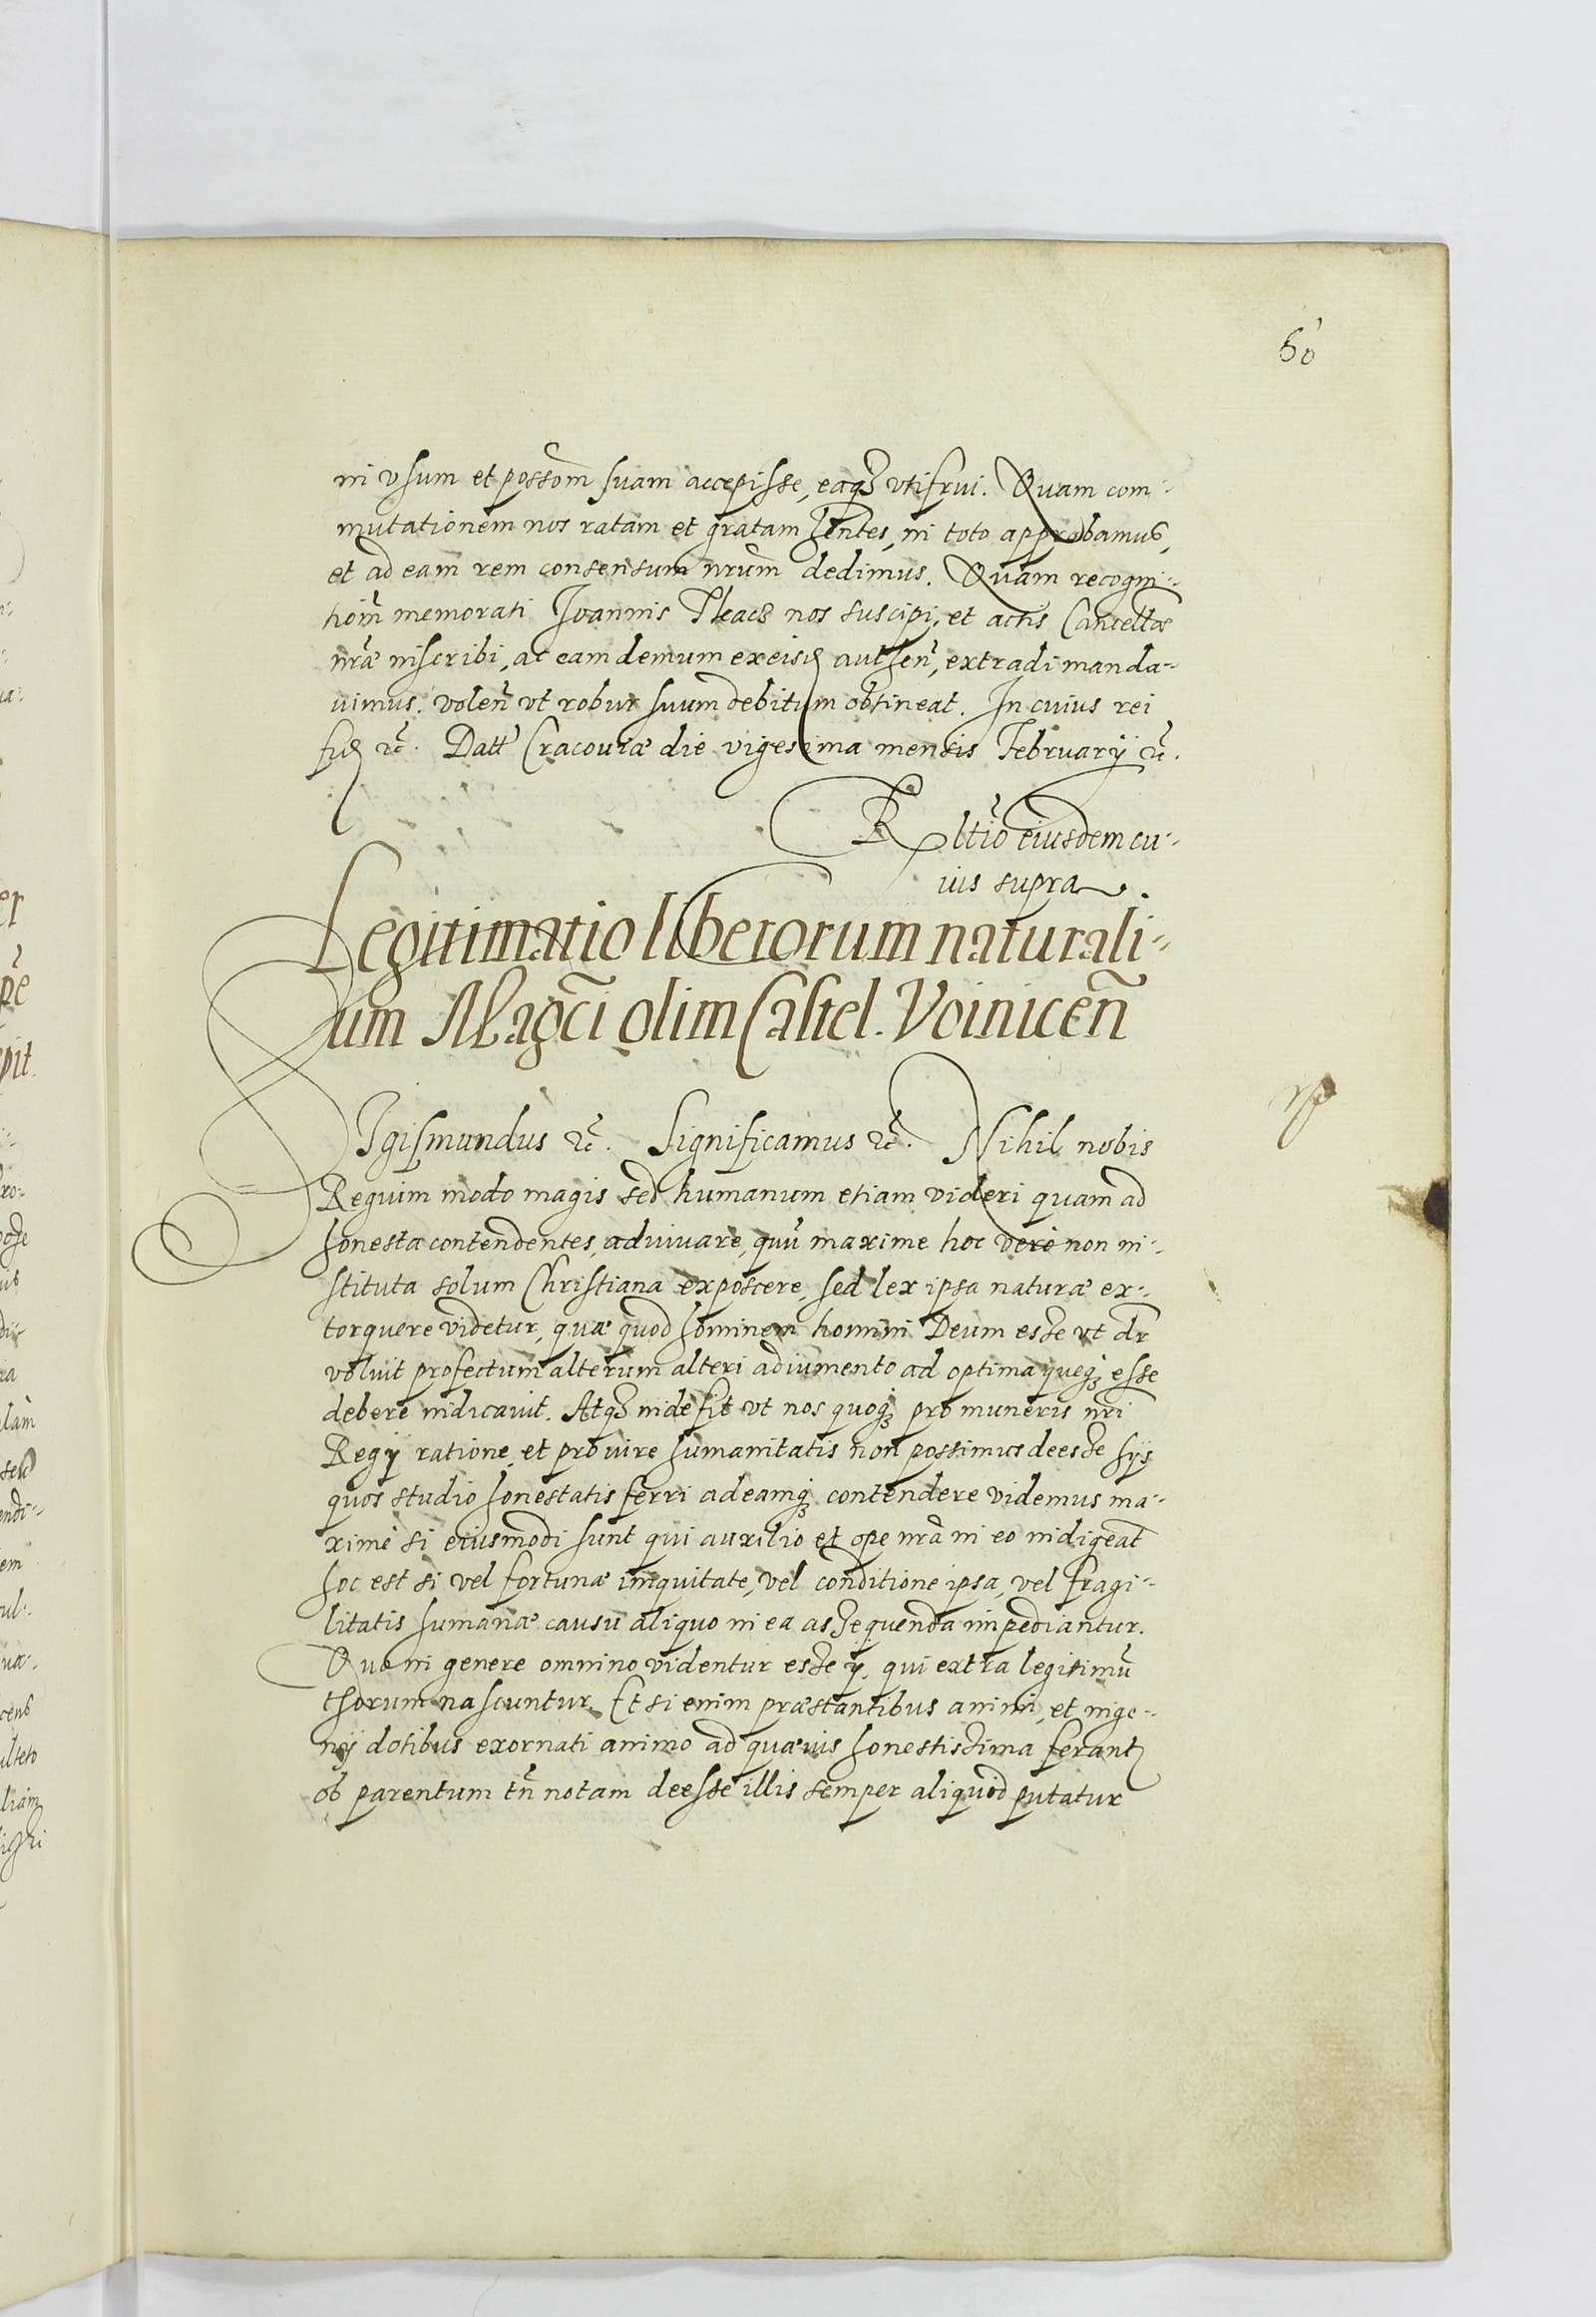 60
in vsum et possom̃ suam accepisse, eaqȝ vtifrui. Quam com-
mutationem nos ratam et gratam hẽntes, in toto approbamus,
et ad eam rem consensum nr̃um dedimus. Quam recogni-
tiom̃ memorati Joannis Tkacȝ nos suscipi, et actis Cancellæ
nr̃æ inscribi, ac eam demum ex eisꝫ authen̄, extradi manda-
uimus. volen̄ vt robur suum debitum obtineat. In cuius rei
fidꝫ ꝛc̃. Datt̃ Cracouiæ die vigesima mensis Februarij ꝛc̃.
Rltĩo eiusdem cu-
ius supra.
Legitimatio liberorum naturali-
um Mag̃ci olim Castel. Voinicen̄
SIgismundus ꝛc̃. Significamus ꝛc̃. Nihil nobis
Regium modo magis sed humanum etiam videri quam ad
honesta contendentes, adiuuare, quũ maxime hoc vero non in-
stituta solum Christiana exposcere, sed lex ipsa naturæ ex-
torquere videtur, quæ quod hominem homini Deum esse vt dr̃
voluit profectum alterum alteri adiumento ad optima queqȝ esse
debere indicauit. Atqȝ inde fit vt nos quoqȝ pro muneris nr̃i
Regij ratione, et pro iure humanitatis non possimus deesse hijs
quos studio honestatis ferri ad eamqȝ contendere videmus ma-
xime si eiusmodi sunt qui auxilio et ope nr̃a in eo indigeãt
hoc est si vel fortunæ iniquitate, vel conditione ipsa, vel fragi-
litatis humanæ causu aliquo in ea assequenda impediantur.
Quo in genere omnino videntur esse ij, qui extra legitimũ
thorum nascuntur. Et si enim præstantibus animi, et inge-
nij dotibus exornati animo ad quæuis honestissima ferantꝫ
ob parentum tñ notam deesse illis semper aliquod putatur